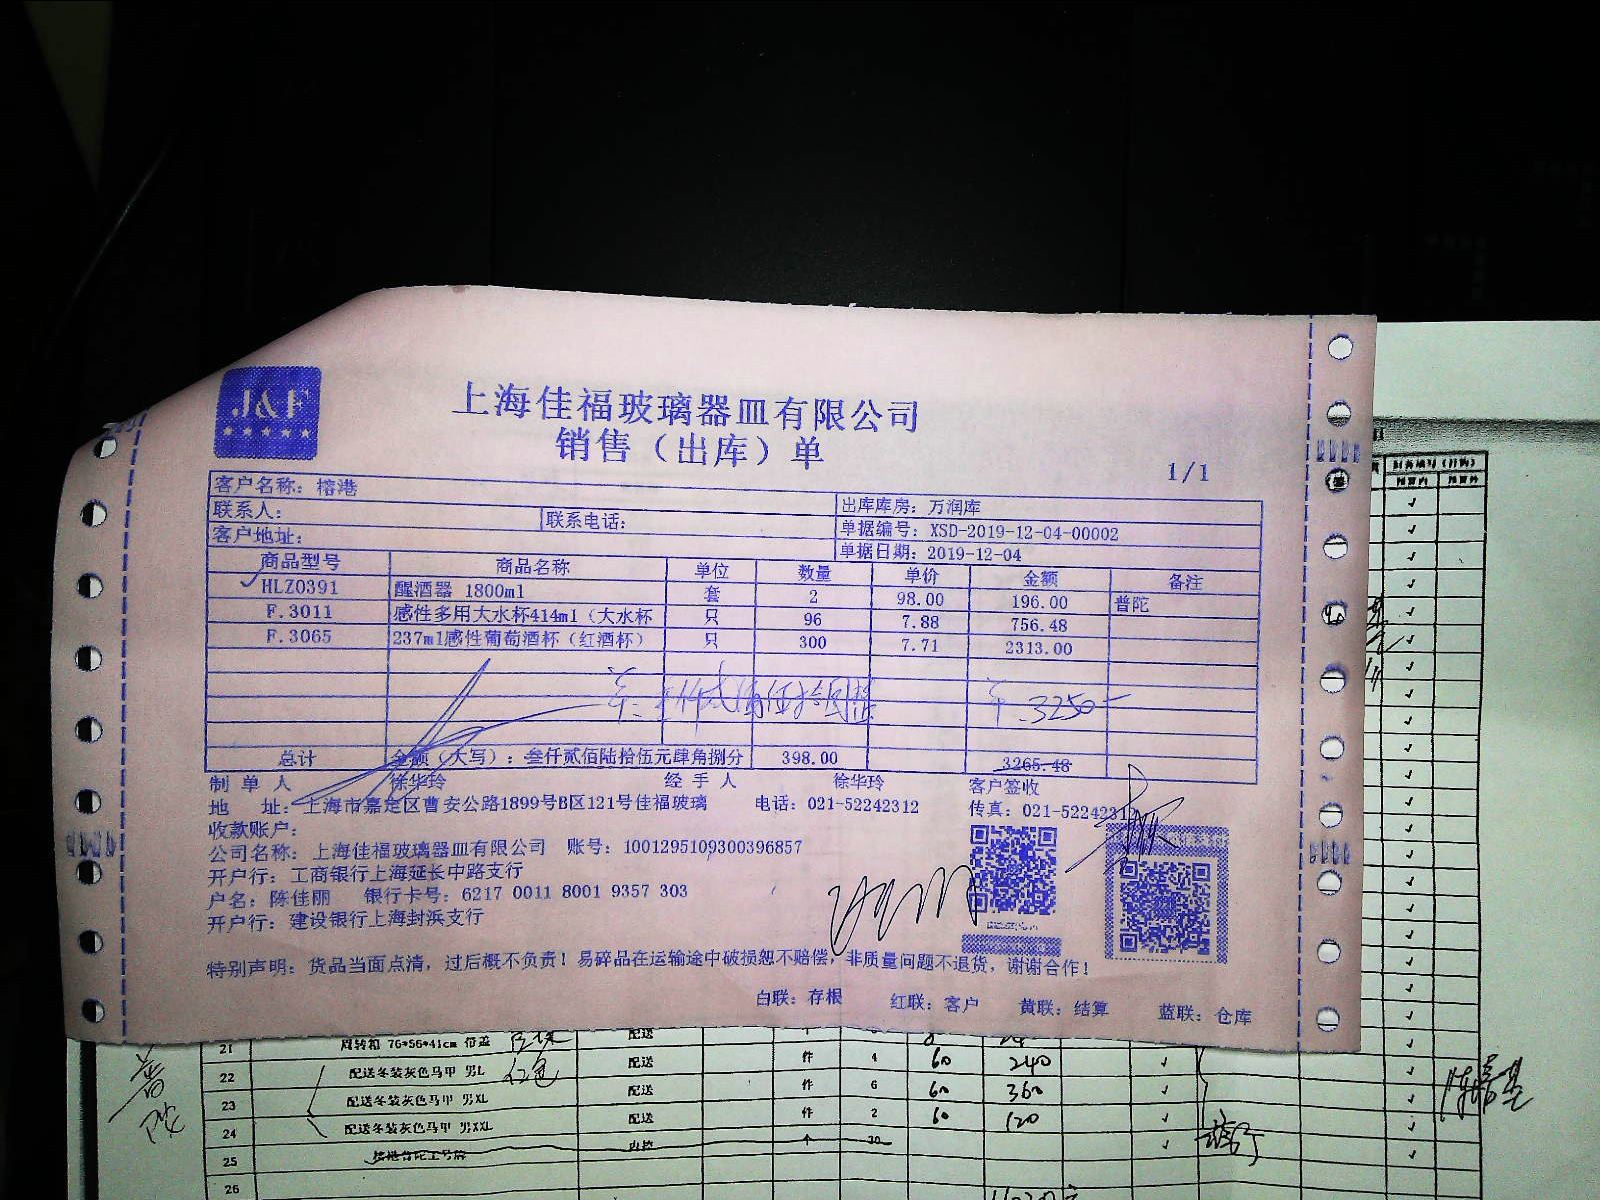 J&F
上海佳福玻璃器皿有限公司
销售（出库）单
1/1
客户名称：榕港
出库库房：万润库
联系人：
联系电话：
单据编号：XSD-2019-12-04-00002
客户地址：
单据日期：2019-12-04
商品型号 商品名称 单位 数量 单价 金额 备注
HLZ0391 醒酒器 1800ml 套 2 98.00 196.00 普陀
F.3011 感性多用大水杯414ml（大水杯 只 96 7.88 756.48
F.3065 237ml感性葡萄酒杯（红酒杯） 只 300 7.71 2313.00
叁仟贰佰伍拾圆整 3250-
总计 金额（大写）：叁仟贰佰陆拾伍元肆角捌分 398.00 3265.48
制单人 徐华玲 经手人 徐华玲 客户签收
地 址：上海市嘉定区曹安公路1899号B区121号佳福玻璃 电话：021-52242312 传真：021-5224231
收款账户：
公司名称：上海佳福玻璃器皿有限公司 账号：1001295109300396857
开户行：工商银行上海延长中路支行
户名：陈佳丽 银行卡号：6217 0011 8001 9357 303
开户行：建设银行上海封浜支行
特别声明：货品当面点清，过后概不负责！易碎品在运输途中破损恕不赔偿，非质量问题不退货，谢谢合作！
白联：存根 红联：客户 黄联：结算 蓝联：仓库
21 周转箱 76*56*41cm 带盖 配送
22 配送冬装灰色马甲 男L 红色 配送 件 4 60 240
23 配送冬装灰色马甲 男XL 配送 件 6 60 360
24 配送冬装灰色马甲 男XXL 配送 件 2 60 120
25 个 30
26
普陀